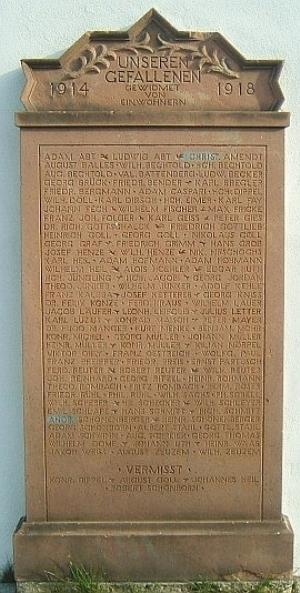 UNSEREN
GEFALLENEN
1914 GEWIDMET 1918
VON
EINWOHNERN
ADAM ABT LUDWIG ABT CHRIST. AMENDT
AUGUST BALLES WILH. BECHTOLD HCH. BECHTOLD
AUG. BECHTOLD VAL. BATTENBERG LUDW. BECKER
GEORG BRÜCK FRIEDR. BENDER KARL BREGLER
FRIEDR. BERGMANN ADAM CASPARI HCH. DIPPEL
WILH. DÖLL KARL DIRSCH HCH. EIMER KARL FAY
JOHANN FECH WILHELM FISCHER MAX FRICKE
FRANZ JOH. FOLGER KARL GEISS PETER GIES
DR. RICH. GOTTSCHALCK FRIEDRICH GOTTLIEB
HEINRICH GÖLL GEORG GÖLL NIKOLAUS GÖLL
GEORG GRAF FRIEDRICH GRIMM HANS GROB
JOSEF HENZE WILH. HENZE NIK. HIRSCHOCHS
KARL HEIL ADAM HOFMANN ADAM HOHMANN
WILHELM HEIL ALOIS ICHLER EDGAR HUTH
HCH. JÜNGLING HCH. JACOB GEORG JORDAN
THEOD. JUNKER WILHELM JUNKER ADOLF KEHL
FRANZ KALUBA JOSEF KETTERER GEORG KNISS
DR. FELIX KUNZE FERD. KRAUS WILHELM LAUER
JACOB LAUFER LEONH. LEISCHUS JULIUS LETTER
KARL LUZIUS KONRAD MASCH PETER MAYER
DR. HUGO MANGES KURT MENKE BENJAM. MOHR
KONR. MICHEL GEORG MÜLLER JOHANN MÜLLER
HEINR. MÜLLER KONR. MÜLLER KILIAN NÖPPEL
VIKTOR OHLY FRANZ OESTREICH WOLFG. PAUL
FRANZ PFEIFFER FRIEDR. PREIS ERNST PARTZSCH
FERD. REUTER ROBERT REUTER WILH. REUTER
JOH. REINHARD GEORG RITZEL HEINR. ROHMANN
THEOD. ROMBACH FRITZ ROMBACH HERM. RÖDER
FRIEDR. RÜHL PHIL. RÜHL WILH. SACHS PH. SCHELL
WILH. SCHERER HR. SCHERER WILH. SCHLEYER
EMIL SCHLAPE HANS SCHMITT HCH. SCHMITT
ANDR. SCHÖNENBERGER HEINR. SCHÖNENBERGER
GEORG SCHÖNBORN ALBERT STAHL GOTTL. STAIB
ADAM SCHWINN AUG. SCHLICKER GEORG THOMAS
WILHELM DÖME JOHANN UTH HEINR. WAAS
JAKOB WEISS AUGUST ZEUZEM WILH. ZEUZEM
VERMISST
KONR. DIPPEL AUGUST GÖLL JOHANNES HEIL
ROBERT SCHÖNBORN